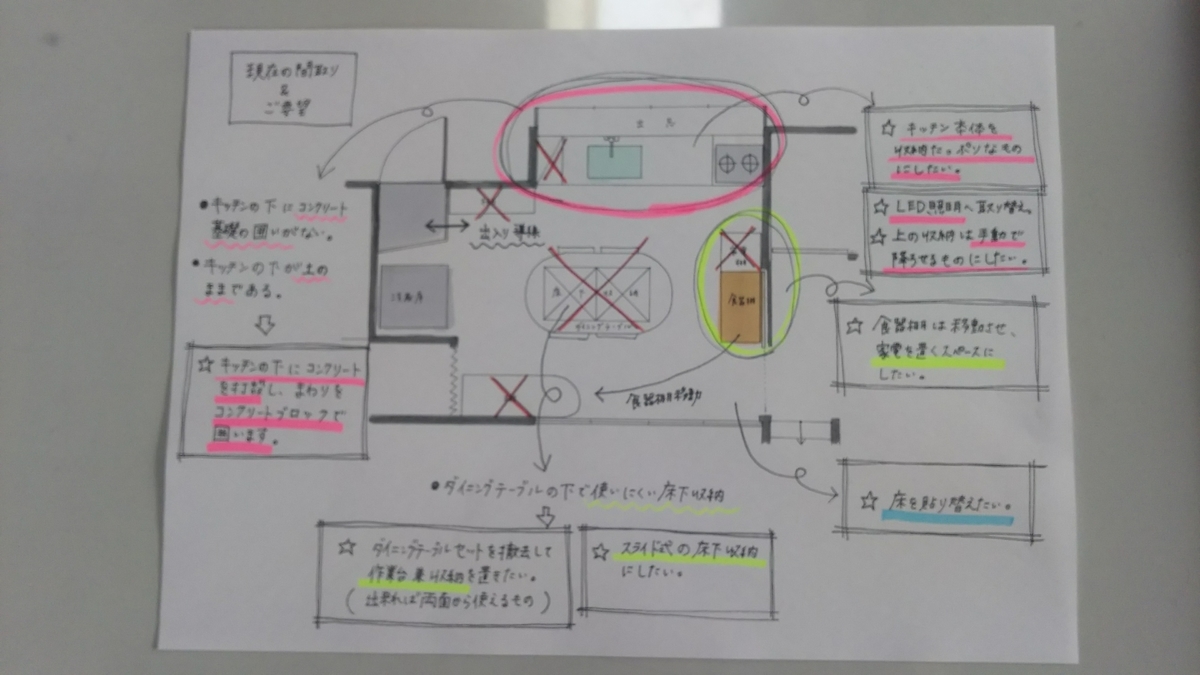 現在の間取り
&
ご要望
出窓
☆ キッチン本体を
収納たっぷりなもの
にしたい。
☆ LED照明へ取り替え。
☆ 上の収納は手動で
降ろせるものにしたい。
●キッチンの下にコンクリート
基礎の囲いがない。
●キッチンの下が土の
ままである。
出入り導線
冷蔵庫
食器棚
床下収納
ダイニングテーブル
☆ 食器棚は移動させ、
家電を置くスペースに
したい。
☆ キッチンの下にコンクリート
を打設し、まわりを
コンクリートブロックで
囲います。
食器棚移動
●ダイニングテーブルの下で使いにくい床下収納
☆ 床を貼り替えたい。
☆ ダイニングテーブルセットを撤去して
作業台兼収納を置きたい。
(出来れば両面から使えるもの)
☆ スライド式の床下収納
にしたい。